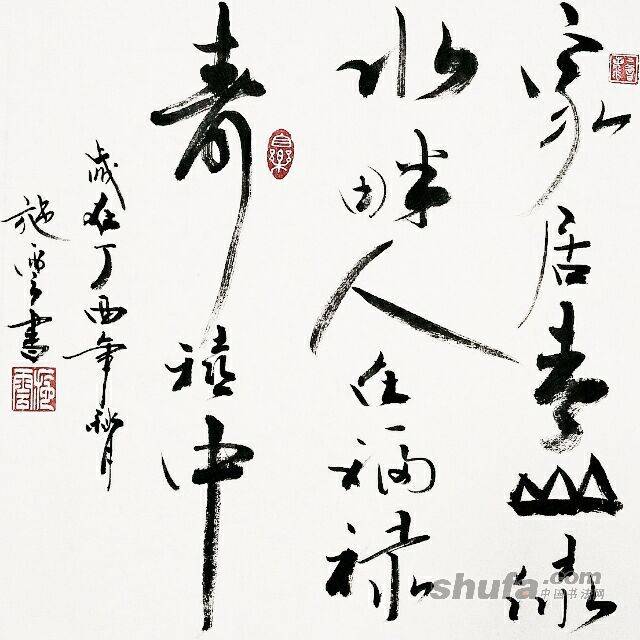 家居青山绿
水畔人在福禄
寿禧中
歲在丁酉年秋月
施雲書
施雲
shufa.com
中国书法网